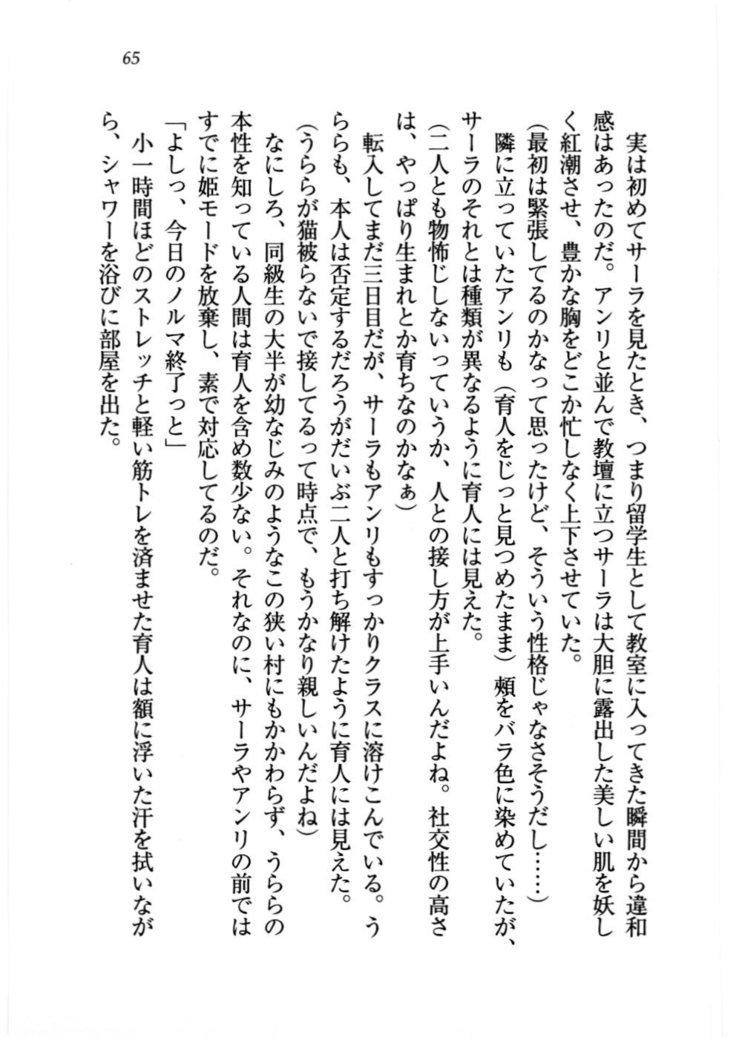 65
実は初めてサーラを見たとき、つまり留学生として教室に入ってきた瞬間から違和
感はあったのだ。アンリと並んで教壇に立つサーラは大胆に露出した美しい肌を妖し
く紅潮させ、豊かな胸をどこか忙しなく上下させていた。
(最初は緊張してるのかなって思ったけど、そういう性格じゃなさそうだし……)
隣に立っていたアンリも(育人をじっと見つめたまま)頰をバラ色に染めていたが、
サーラのそれとは種類が異なるように育人には見えた。
(二人とも物怖じしないっていうか、人との接し方が上手いんだよね。社交性の高さ
は、やっぱり生まれとか育ちなのかなぁ)
転入してまだ三日目だが、サーラもアンリもすっかりクラスに溶けこんでいる。う
ららも、本人は否定するだろうがだいぶ二人と打ち解けたように育人には見えた。
(うららが猫被らないで接してるって時点で、もうかなり親しいんだよね)
なにしろ、同級生の大半が幼なじみのようなこの狭い村にもかかわらず、うららの
本性を知っている人間は育人を含め数少ない。それなのに、サーラやアンリの前では
すでに姫モードを放棄し、素で対応してるのだ。
「よしっ、今日のノルマ終了っと」
小一時間ほどのストレッチと軽い筋トレを済ませた育人は額に浮いた汗を拭いなが
ら、シャワーを浴びに部屋を出た。